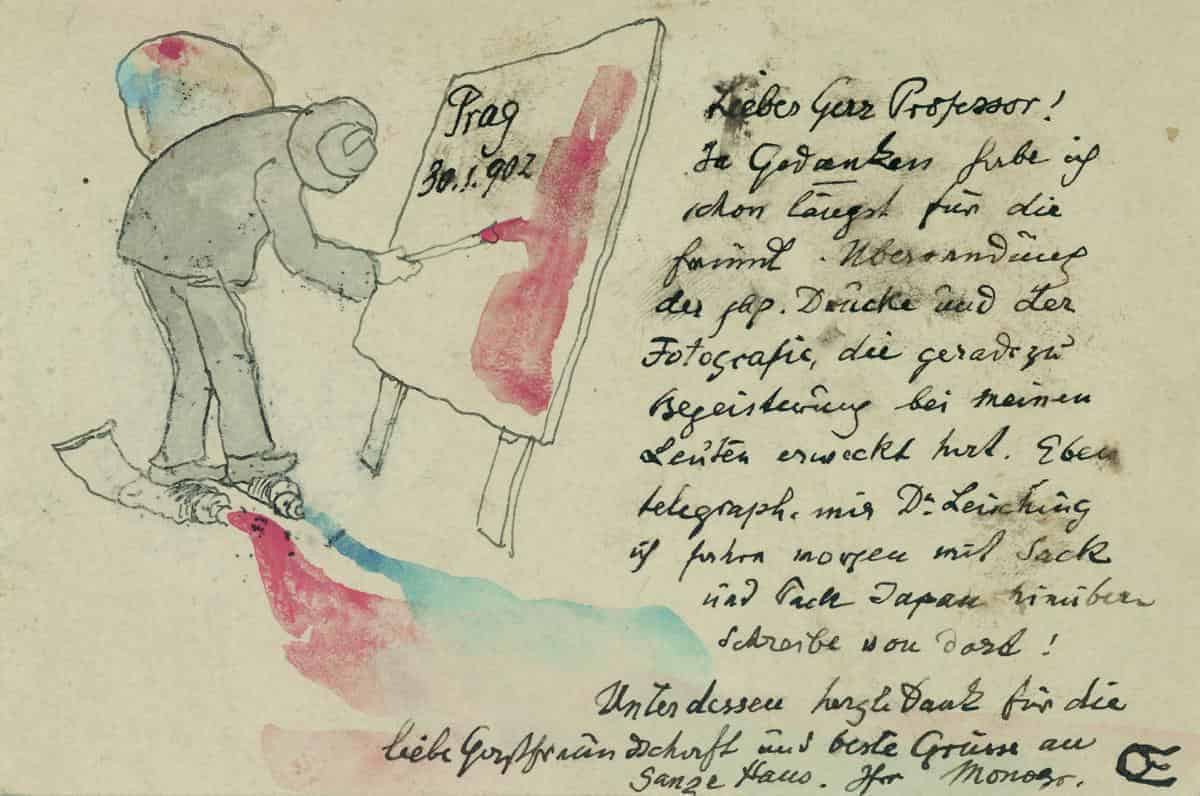 Prag
30.I.902
Lieber Herr Professor!
In Gedanken habe ich
schon längst für die
freundl. Übersendung
der jap. Drucke und der
Fotografie, die geradezu
Begeisterung bei meinen
Leuten erweckt hat. Eben
telegraph. mir Dr. Leisching
ich fahre morgen mit Sack
und Pack Japan hinüber.
Schreibe von dort!
Unterdessen herzl. Dank für die
liebe Gastfreundschaft und beste Grüsse an
Ganze Haus. Ihr